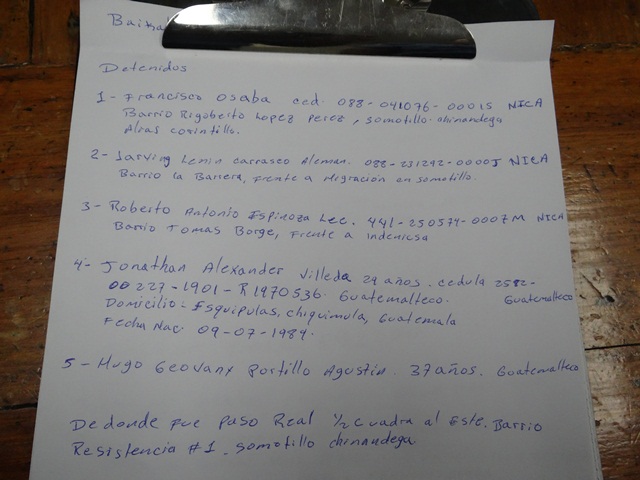 Detenidos
1 - Francisco Osaba ced. 088-041076-0001S NICA
Barrio Rigoberto Lopez Perez, somotillo-chinandega
Alias cosintillo.
2 - Jarving Lenin carrasco Aleman. 088-231292-0000J NICA
Barrio la Barrera, Frente a Migración en somotillo.
3 - Roberto Antonio Espinoza Lee. 441-250574-0007M NICA
Barrio Tomas Borge, Frente a indenicsa
4 - Jonathan Alexander Villeda 29 años. cedula 2582-
00227-1901-R1970536. Guatemalteco. Guatemalteco
Domicilio: Esquipulas, chiquimula, Guatemala
Fecha Nac. 09-07-1984.
5 - Hugo Geovany Portillo Agustin. 37 años. Guatemalteco
De donde fue Paso Real 1/2 cuadra al Este. Barrio
Resistencia #1. somotillo chinandega.